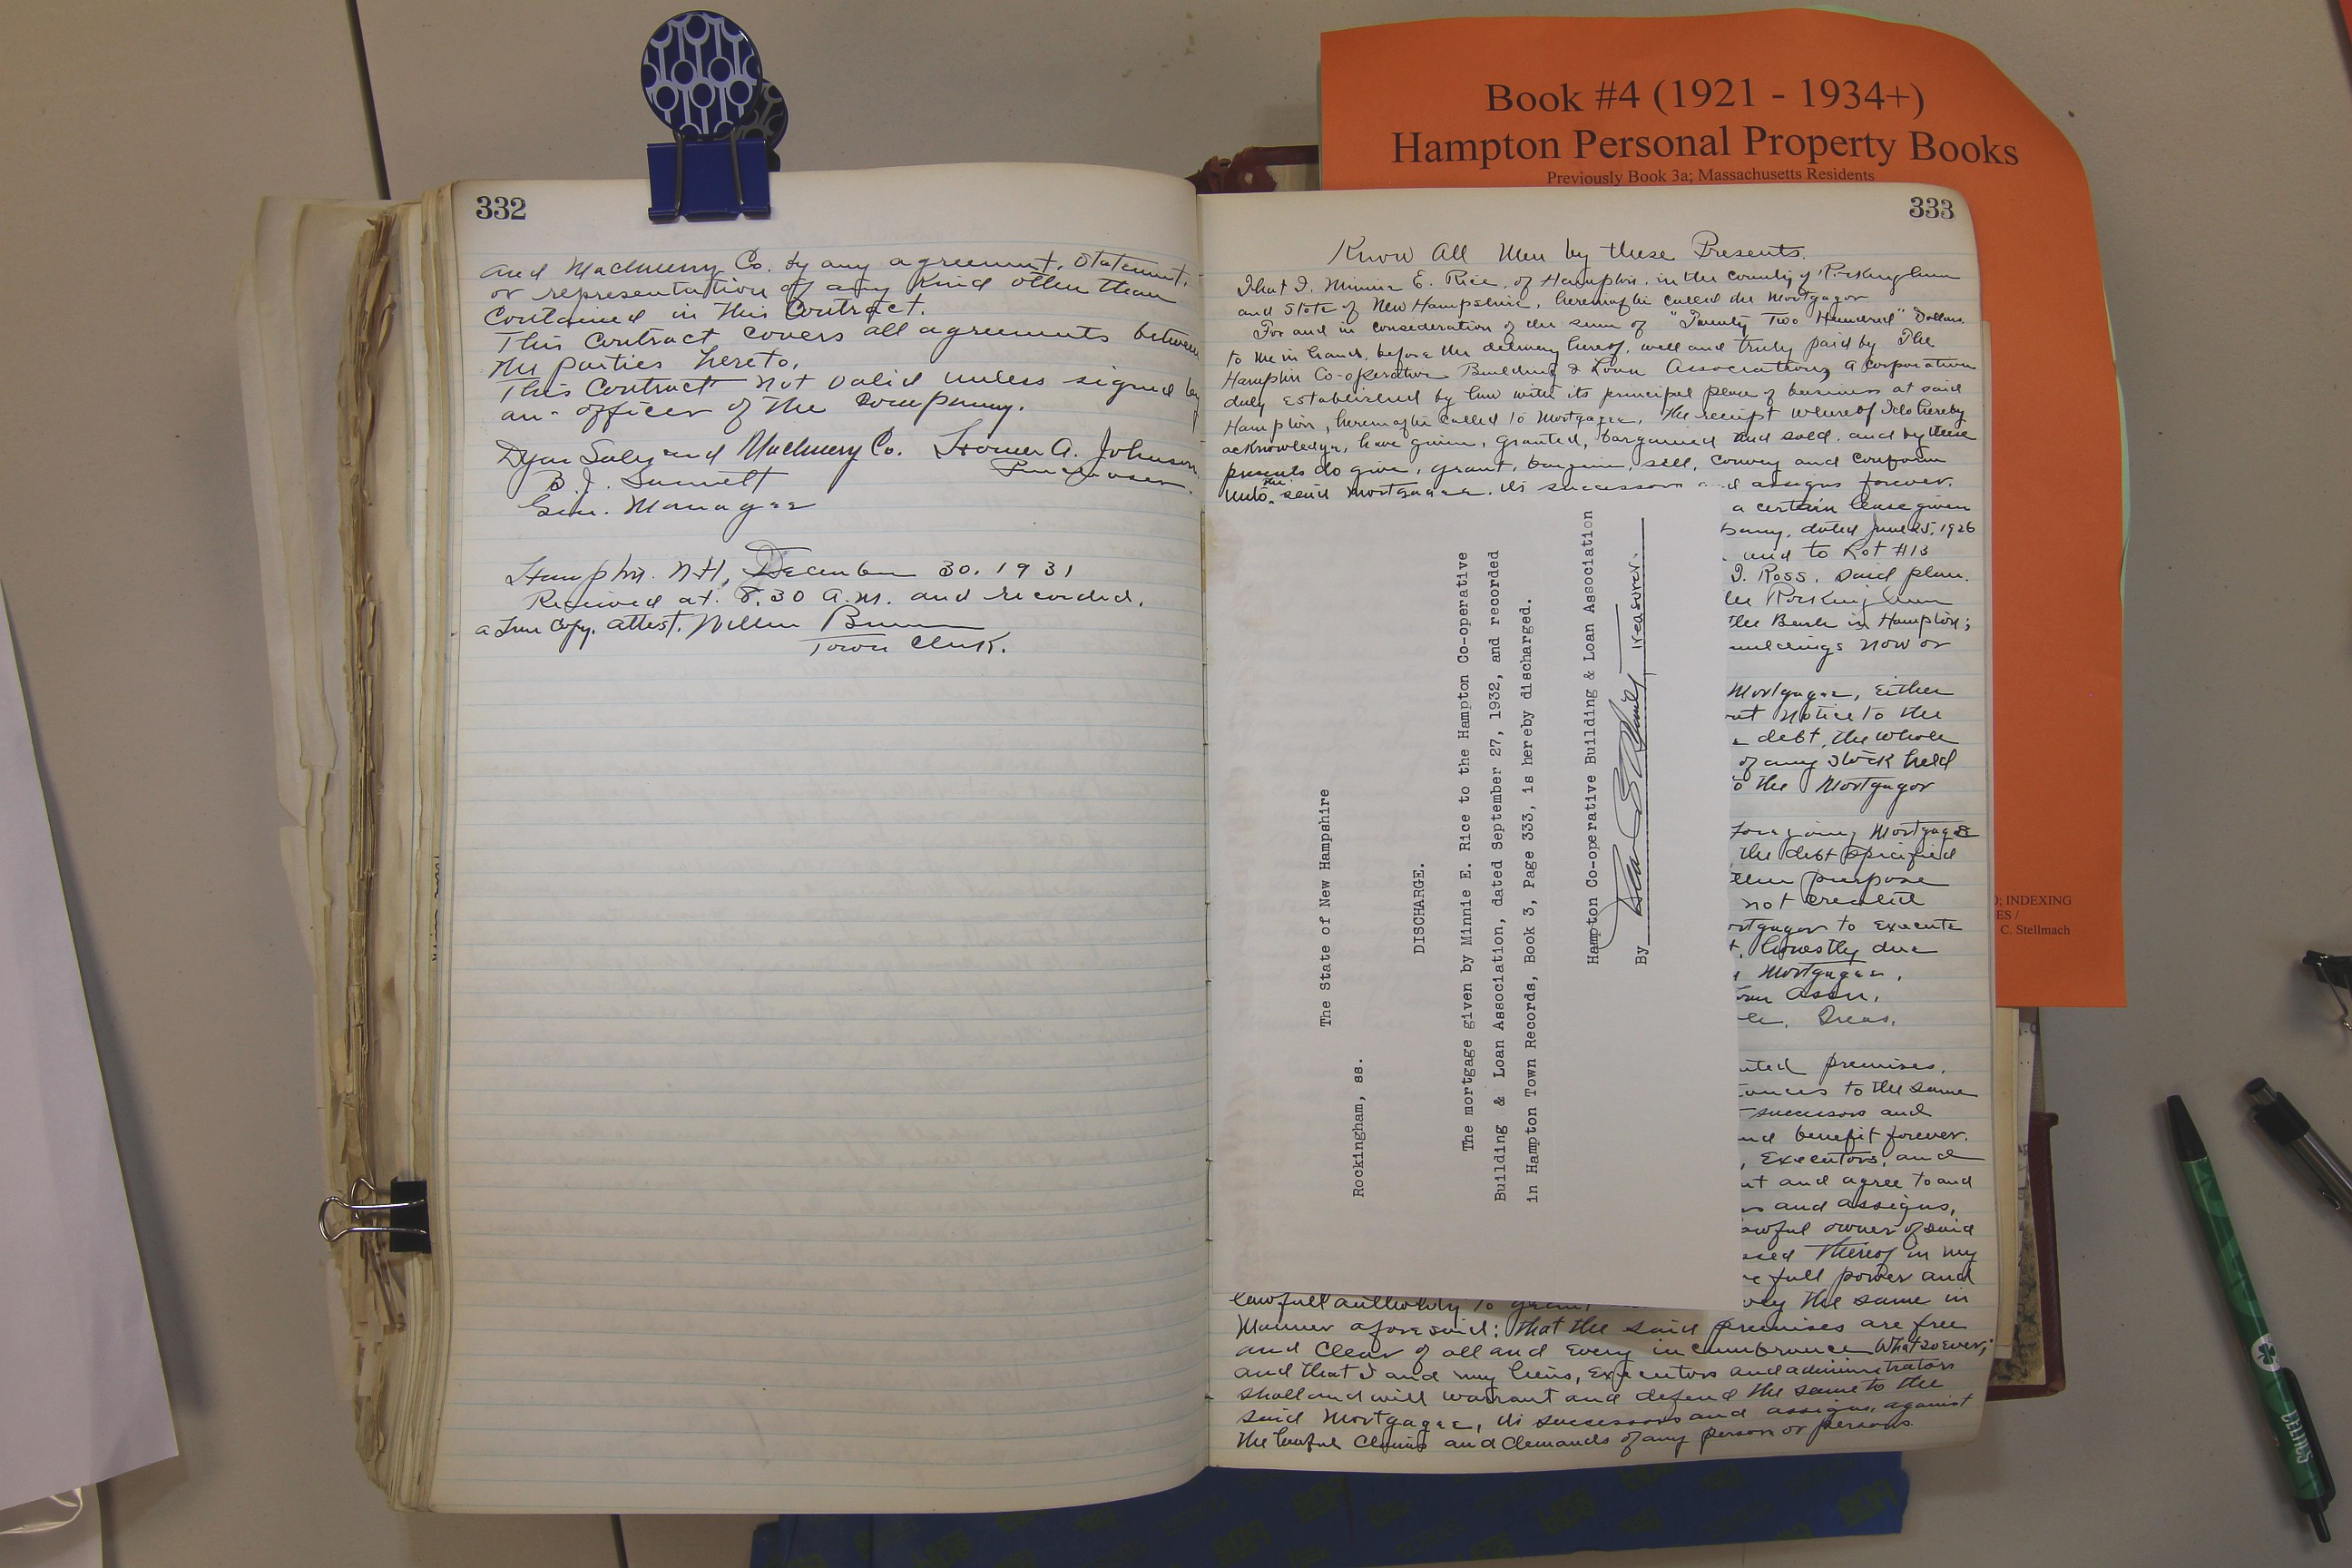 Book #4 (1921 - 1934+)
Hampton Personal Property Books
Previously Book 3a; Massachusetts Residents
332
and Machinery Co. by any agreement, statement,
or representation of any kind other than
contained in this Contract.
This Contract covers all agreements between
the parties hereto.
This Contract not valid unless signed by
an officer of the Company.
Dyar Sales and Machinery Co. Homer A. Johnson
Purchaser.
B. J.
Gen. Manager
Hampton. N.H, December 30. 1931
Received at 8.30 A.M. and recorded.
a True Copy. attest. William Brown
Town Clerk.
333
Know All Men by these Presents.
That I. Minnie E. Rice, of Hampton, in the County of Rockingham
and State of New Hampshire, hereinafter called the Mortgagor
For and in consideration of the sum of "Twenty Two Hundred" Dollars.
to me in hand, before the delivery hereof, well and truly paid by The
Hampton Co-operative Building & Loan Association, a Corporation
duly Established by law with its principal place of business at said
Hampton, hereinafter called to Mortgagee, the receipt whereof I do hereby
acknowledge, have given, granted, bargained and sold, and by these
presents do give, grant, bargain, sell, convey and conform
unto the said Mortgagee. its successors and assigns forever.
a certain lease given
dated June 25, 1926
and to Lot #13
J. Ross. said plan.
the Rockingham
the Bank in Hampton;
buildings now or
Mortgagee, Either
notice to the
debt, the whole
of any stock held
the Mortgagor
foregoing Mortgage
the debt specified
purpose
not created
Mortgagor to execute
honestly due
Mortgagee.
Assn.
Treas.
premises.
to the same
successors and
and benefit forever.
, Executors, and
and agree to and
and assigns,
lawful owner of said
thereof in my
full power and
the same in
lawfull authority to grant
Manner aforesaid: that the said premises are free
and clear of all and Every incumbrance whatsoever;
and that I and my heirs, Executors and administrators
shall and will warrant and defend the same to the
said Mortgagee, its successors and assigns, against
the lawful claims and demands of any person or persons.
The State of New Hampshire
Rockingham, ss.
DISCHARGE.
The mortgage given by Minnie E. Rice to the Hampton Co-operative
Building & Loan Association, dated September 27, 1932, and recorded
in Hampton Town Records, Book 3, Page 333, is hereby discharged.
Hampton Co-operative Building & Loan Association
By
Treasurer.
INDEXING
C. Stellmach